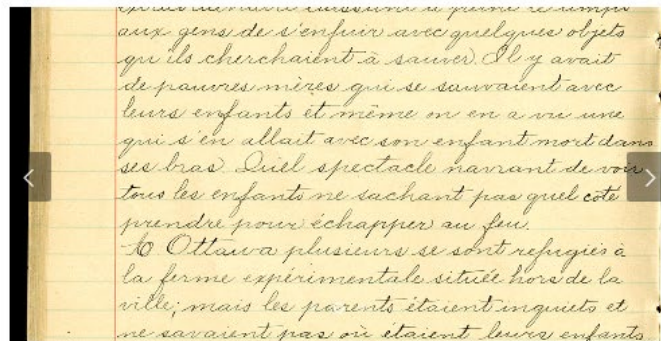 aux gens de s'enfuir avec quelques objets
qu'ils cherchaient à sauver. Il y avait
de pauvres mères qui se sauvaient avec
leurs enfants et même on en a vu une
qui s'en allait avec son enfant mort dans
ses bras. Quel spectacle navrant de voir
tous les enfants ne sachant pas quel côté
prendre pour échapper au feu.
Ottawa plusieurs se sont refugiés à
la ferme expérimentale située hors de la
ville; mais les parents étaient inquiets et
ne savaient pas où étaient leurs enfants